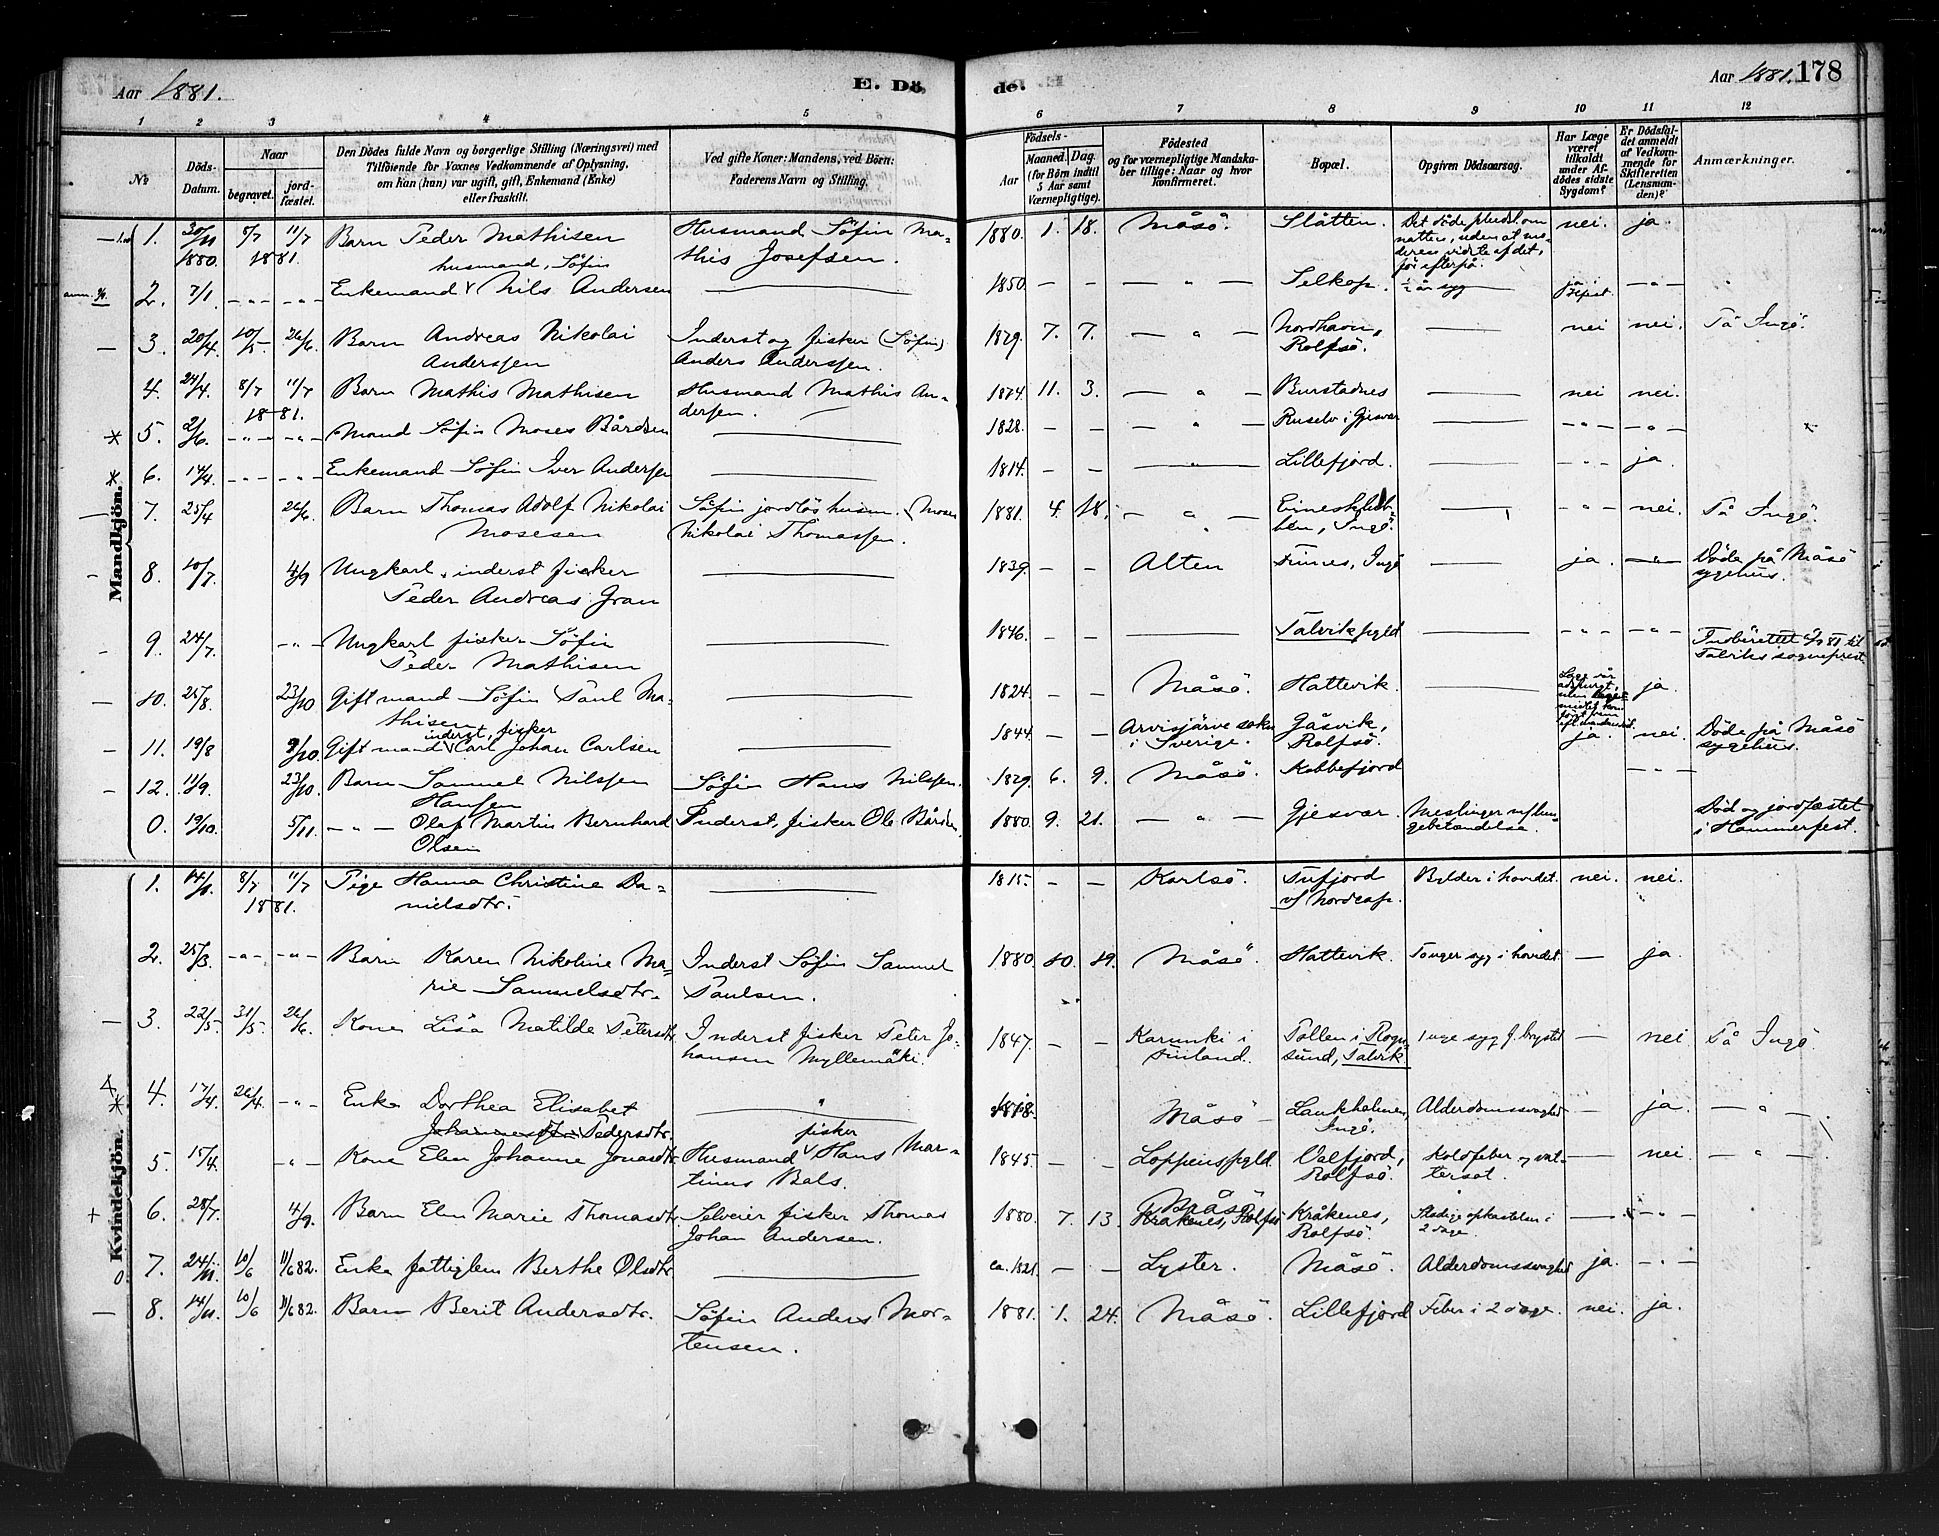 Aar 1881.
E. Dö
de.
Aar 1881. 178
1 2 3 4 5 6 7 8 9 10 11 12
No
Döds-Datum.
Naar
begravet.
jord-fæstet.
Den Dödes fulde Navn og borgerlige Stilling (Næringsvei) med
Tilföiende for Voxnes Vedkommende af Oplysning,
om han (hun) var ugift, gift, Enkemand (Enke)
eller fraskilt.
Ved gifte Koner: Mandens, ved Börn:
Faderens Navn og Stilling.
Födsels-
Aar
Maaned. Dag.
(for Börn indtil
5 Aar samt
Værnepligtige).
Födested
og for værnepligtige Mandska-
ber tillige: Naar og hvor
konfirmeret.
Bopæl.
Opgiven Dödsaarsag.
Har Læge
været
tilkaldt
under Af-
dødes sidste
Sygdom?
Er Dödsfal-
det anmeldt
af Vedkom-
mende for
Skifteretten
(Lensman-
den)?
Anmærkninger.
Mandkjön.
1. 30/11 1880. 8/7 11/7 1881. Barn Peder Mathisen Husmand, Söfin Ma-
husmand, Söfin this Josefsen. 1880. 1. 18. Måsö. Slåtten. Det döde pludsl. om
natten, uden at mo-
deren vidste af det,
för efterpå. nei. ja
2. 7/1 -"- -"- Enkemand Nils Andersen — 1850. — — — " — Selkop. ½ år syg ja — " —
3. 20/4 10/5 26/6 Barn Andreas Nikolai Inderst og fisker (Söfin)
Anderssen Anders Anderssen. 1879. 7. 7. — " — Nordhavn,
Rolfsö. — nei nei. På Ingö.
4. 24/4 8/7 11/7 1881. Barn Mathis Mathisen Husmand Mathis An-
dersen. 1874. 11. 3. — " — Burstadnes — nei nei.
5. 2/6. -"- -"- Mand Söfin Moses Bårdsen — 1828. — — — " — Ruselv i Gjesvær — -"- -"-
6. 14/4. -"- -"- Enkemand Söfin Iver Andersen — 1814. — — — " — Lillefjord. — -"- ja.
7. 25/4 26/6. Barn Thomas Adolf Nikolai Söfin jordlös husm. Moses
Mosesen Nikolai Thomassen. 1881. 4. 18. — " — Ingö. — -"- nei. På Ingö.
8. 10/7. 4/9 Ungkarl, inderst fisker — 1839. — — Alten Finnes, Ingö — ja. — " — Döde på Måsö
Peder Andreas Gran sygehus.
9. 24/7. -"- Ungkarl fisker Söfin — 1846. — — Talvik pgld — -"- -"- til
Peder Mathisen Talviks sogneprest
10. 25/8. 23/10 Gift mand Söfin Paul Ma- — 1824. — — Måsö. Hattevik. — ja.
thisen
11. 19/8 9/10. inderst, fisker
Gift mand Carl Johan Carlsen — 1844. — — Arvisjärve sokn
i Sverige. Gåsvik,
Rolfsö. ja. nei. Döde på Måsö
sygehus.
12. 11/9. 23/10. Barn Samuel Nilssen Söfin Hans Nilssen. 1879. 6. 9. Måsö. Kobbefjord — " —
Hansen
0. 19/10. 5/11. — " — Olaf Martin Bernhard Inderst, fisker Ole Bårdsen. 1880. 9. 21. — " — Gjesvær. Meslinger m/lun-
gebetændelse. Död og jordfæstet
i Hammerfest.
Olsen
Kvindekjön.
1. 14/1. 8/7 11/7 1881. Pige Hanna Christine Da-
nielsdtr. — 1815. — — Karlsö. Tufjord
v/ Nordcap. Bylder i hovedet. nei. nei.
2. 25/3. -"- -"- Barn Karen Nikoline Ma-
rie Samuelsdtr. Inderst Söfin Samuel
Paulsen. 1880. 10. 19. Måsö. Hattevik. syg i hovedet — ja.
3. 22/5. 31/5. 26/6. Kone Lisa Matilde Petersdtr. Inderst fisker Peter Jo-
hansen Myllemäki. 1847. — — Karunki i
Finland. Pollen i Rogn-
sund, Talvik. 1 uge syg f. brystet — nei På Ingö.
4. 17/4. 26/4. -"- Enke Dorthea Elisabet
Pedersdtr. — " — 1818. Måsö Lankholmen,
Ingö. Alderdomssvaghed — ja. — " —
5. 15/4. -"- Kone Elen Johanne Jonasdtr. Husmand fisker Hans Mar-
tinus Bals. 1845. — — Loppens pgld. Valfjord,
Rolfsö. Koldfeber og vat-
tersot. — nei. — " —
6. 28/7. 4/9. Barn Elen Marie Thomasdtr. Selveier fisker Thomas
Johan Andersen. 1880. 7. 13. Måsö
Kråkenes, Rolfsö Kråkenes,
Rolfsö. Stadige opkastelser i
2 dage. — -"-
7. 24/11. 10/6 11/6 82. Enke fattiglem Berthe Olsdtr. — ca. 1821. — — Lyster. Måsö. Alderdomssvaghed ja. — " —
8. 14/11. 10/6 11/6 82. Barn Berit Andersdtr. Söfin Anders Mor-
tensen. 1881. 1. 24. Måsö. Lillefjord Feber i 2 dage. nei. ja.